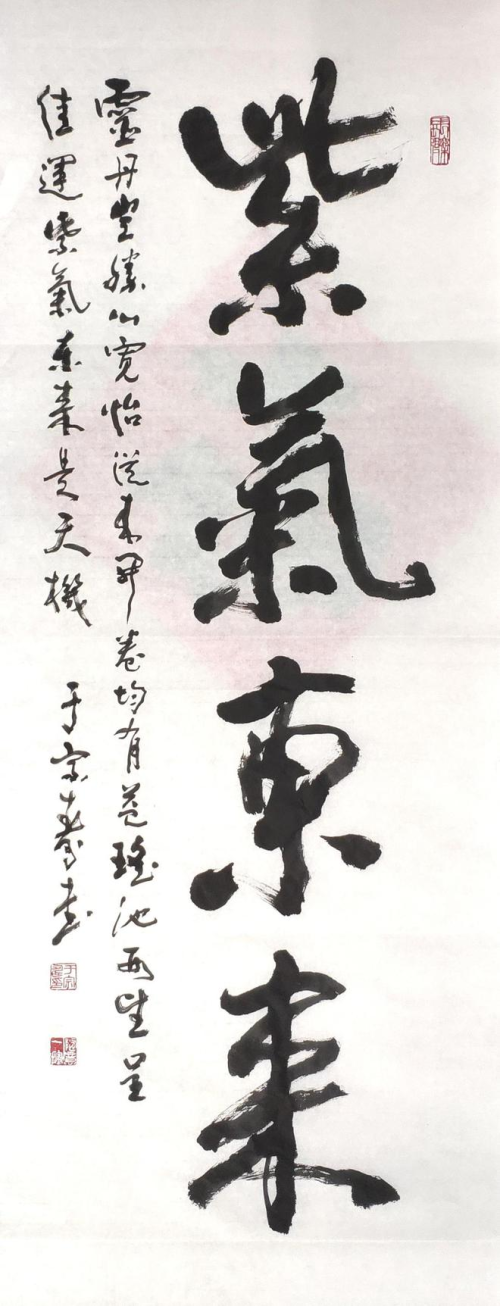 紫氣東來
靈丹豈勝心寬怡從來開卷均有益瑤池西望呈
佳運紫氣東來是天機
于宗書